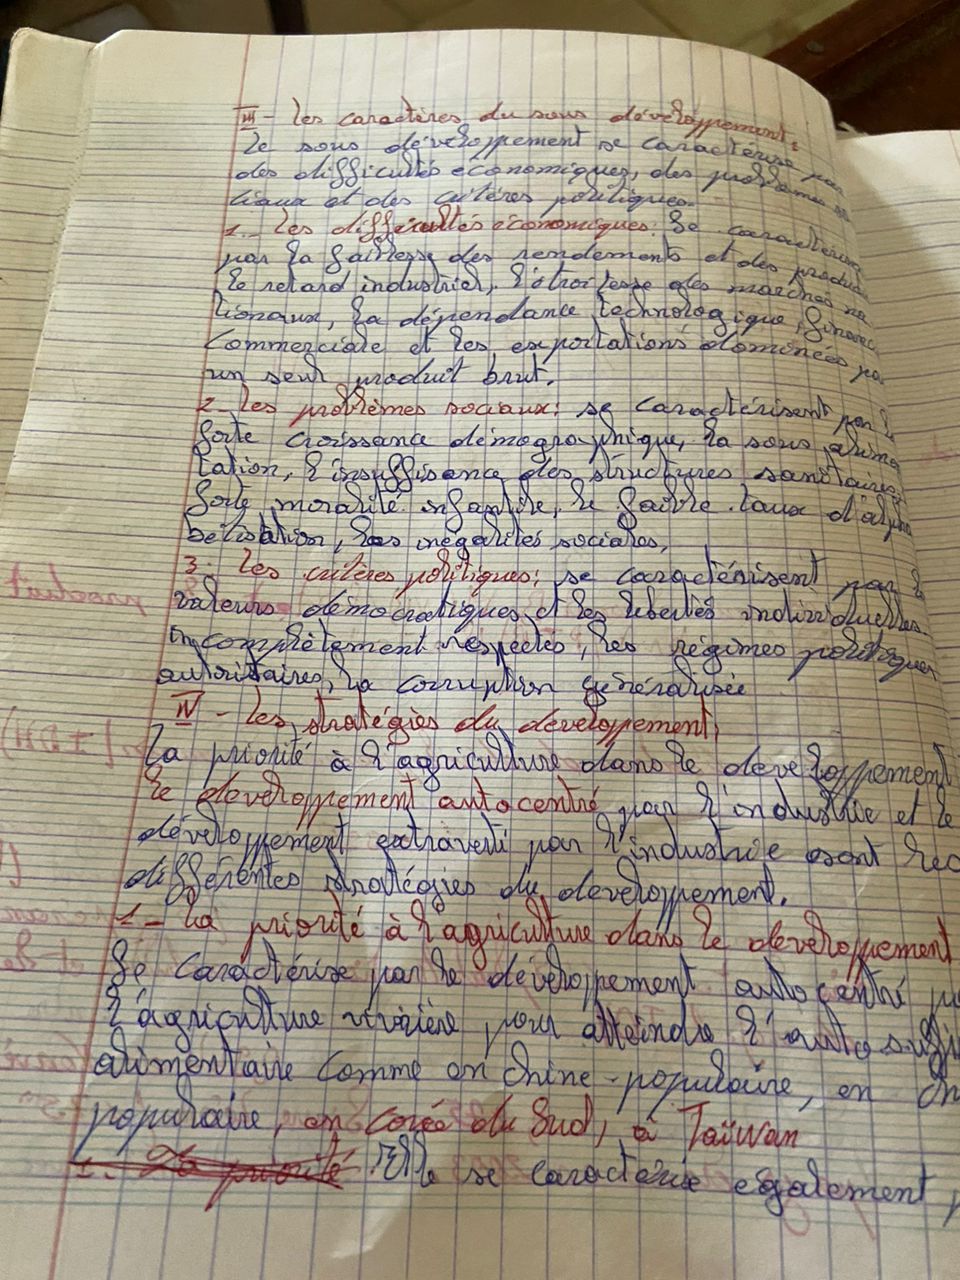 III - Les caractères du sous développement:
Le sous développement se caractérise par
des difficultés économiques, des problèmes so
ciaux et des critères politiques.
1.- Les difficultés économiques: Se caractérise
par la faiblesse des rendements et des produc
le retard industriel, l'étroitesse des marchés na
tionaux, la dépendance technologique, financi
Commerciale et les exportations dominées pa
un seul produit brut.
2- Les problèmes sociaux: se caractérisent par la
forte croissance démographique, la sous alimen
tation, l'insuffisance des structures sanitaires,
forte moralité infantile, le faible taux d'alpha
bétisation, les inégalités sociales,
3. Les critères politiques: se caractérisent par le
valeurs démocratiques et les libertés individuelles
incomplètement respectés, les régimes politiques
autoritaires, la corruption généralisée
IV - Les stratégies du développement,
La priorité à l'agriculture dans le développement
le développement autocentré par l'industrie et le
développement extraverti par l'industrie sont
différentes stratégies du développement.
1- La priorité à l'agriculture dans le développement
Se caractérise par le développement autocentré
l'agriculture vivrière pour atteindre l'auto suffi
alimentaire comme en Chine-populaire, en Ch
populaire, en Corée du Sud, à Taïwan
2. La priorité Elle se caractérise également p
produit
IDH)